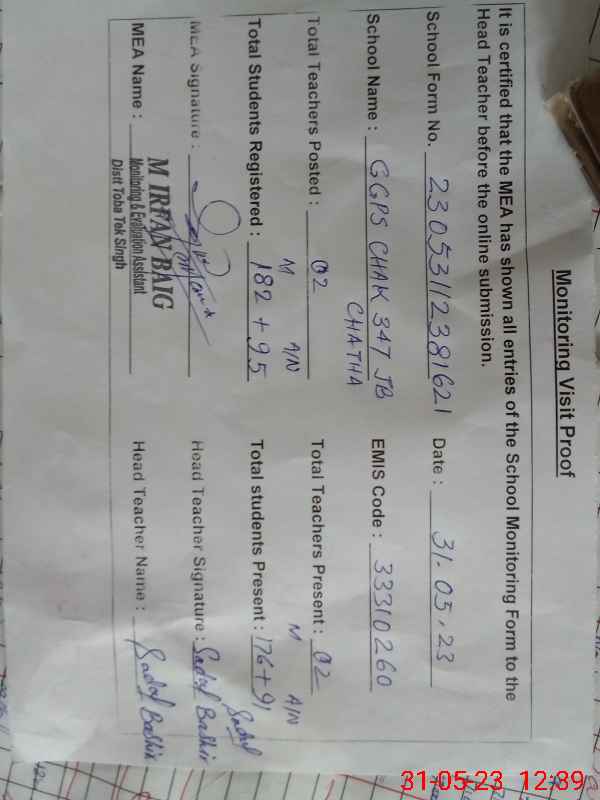 Monitoring Visit Proof
It is certified that the MEA has shown all entries of the School Monitoring Form to the
Head Teacher before the online submission.
School Form No. 23053112381621 Date : 31.05.23
School Name : GGPS CHAK 347 JB EMIS Code : 33310260
CHATHA
Total Teachers Posted : 02 Total Teachers Present : 02
M A/N M A/N
Total Students Registered : 182 + 95 Total students Present : 176+91
Sadaf
MEA Signature : Head Teacher Signature : Sadaf Bashir
MEA Name : M IRFAN BAIG Head Teacher Name : Sadaf Bashir
Monitoring & Evaluation Assistant
Distt Toba Tek Singh
31-05-23 12:39